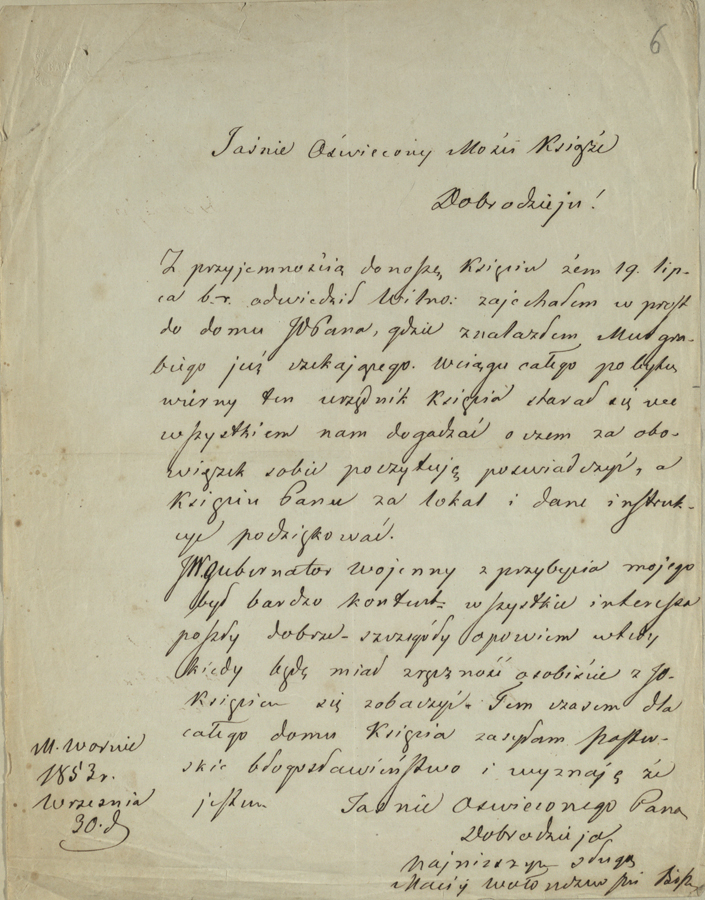 6
Jaśnie Oświecony Mości Książe
Dobrodzieju!
Z przyjemnością donoszę Księciu żem 19. lip-
ca b.r. odwiedził Wilno: zajechałem w prost
do domu JOPana, gdzie znalazłem Murgra-
biego już czekającego. Wciągu całego pobytu
wierny ten urzędnik Księcia starał się we
wszystkiem nam dogadzać o czem za obo-
wiązek sobie poczytuję poswiadczyć, a
Księciu Panu za lokal i dane instruk-
cye podziękować.
JWGubernator Wojenny z przybycia mojego
był bardzo kontent: wszystkie interessa
poszły dobrze - szczegóły opowiem wtedy
kiedy będę miał zręczność osobiście z JO-
Księciem się zobaczyć - Tem czasem dla
całego domu Księcia zasyłam paster-
skie błogosławieństwo i wyznaję że
jestem Jaśnie Oswieconego Pana
Dobrodzieja
najnizszym sługą
Maciej
M. Wornie
1853 r.
Wrzesnia
30. d